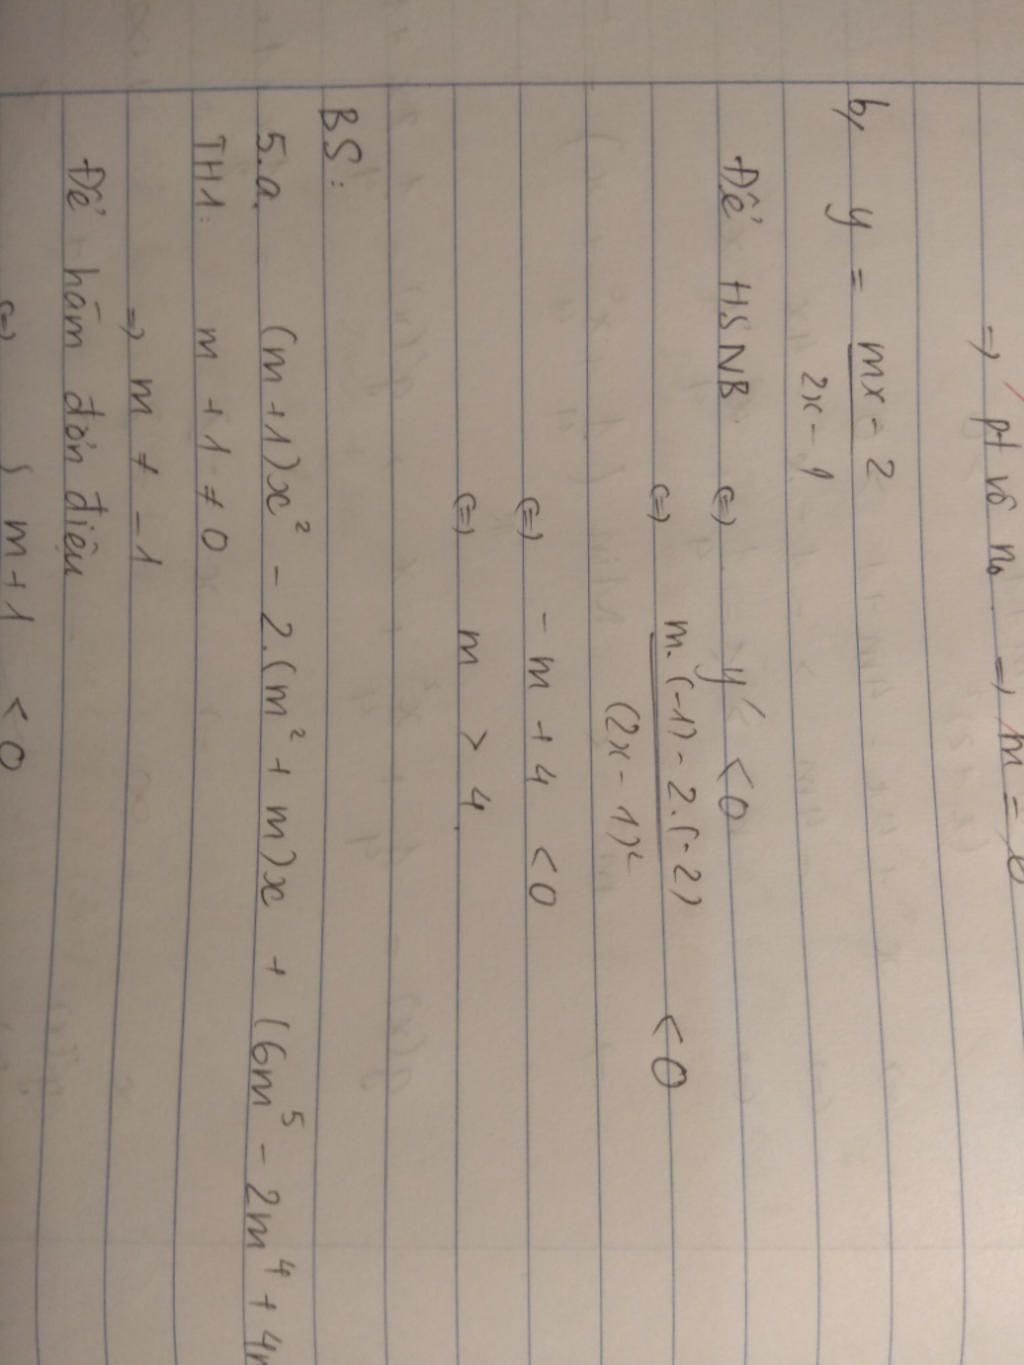 => pt vô n₀ => m =
b, y = mx - 2 / 2x - 1
Để HSNB (=) y' < 0
(=) m.(-1) - 2.(-2) / (2x - 1)² < 0
(=) - m + 4 < 0
(=) m > 4.
BS:
5.a. (m + 1)x² - 2.(m² + m)x + (6m⁵ - 2m⁴ + 4m
TH1: m + 1 ≠ 0
=> m ≠ -1
Để hàm đơn điệu
(=) { m + 1 < 0